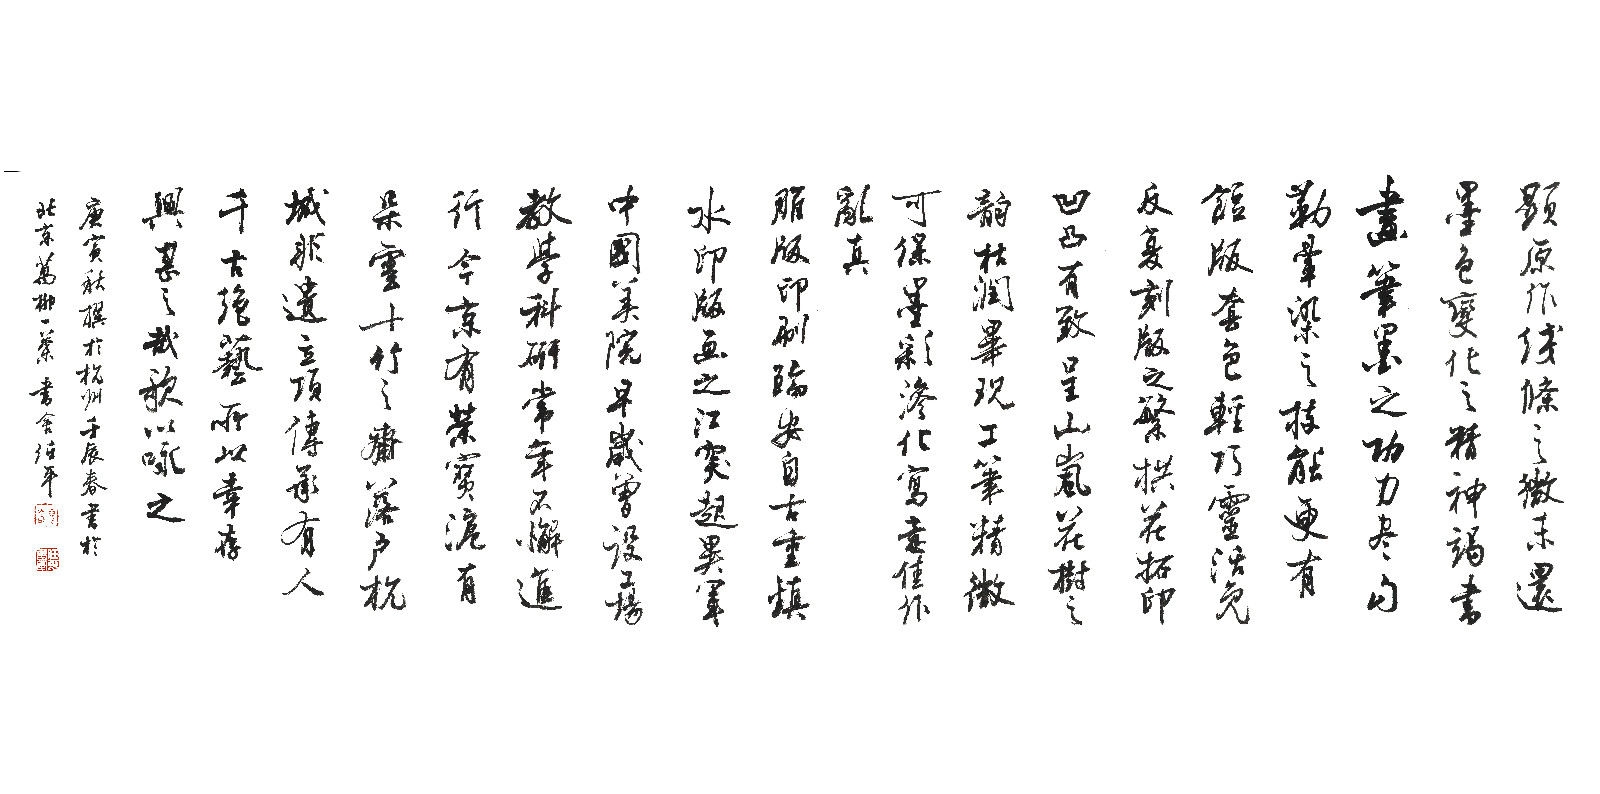 顯原作线條之微末還
墨色變化之精神竭書
畫筆墨之功力盡勾
勒暈染之技能更有
餖版套色輕巧靈活免
反复刻版之繁拱花拓印
凹凸有致呈山嵐花樹之
韵枯潤畢現工筆精微
可保墨彩滲化寫意佳作
亂真
雕版印刷臨安自古重鎮
水印版画之江突起異軍
中國美院早歲曾設工場
教學科研常年不懈進
行今京有榮寶滬有
朵雲十竹之齋落户杭
城非遺立項傳承有人
千古絕藝所以幸存
興甚之哉歌以咏之
庚寅秋撰於杭州壬辰春書於
北京萬柳一葉書舍